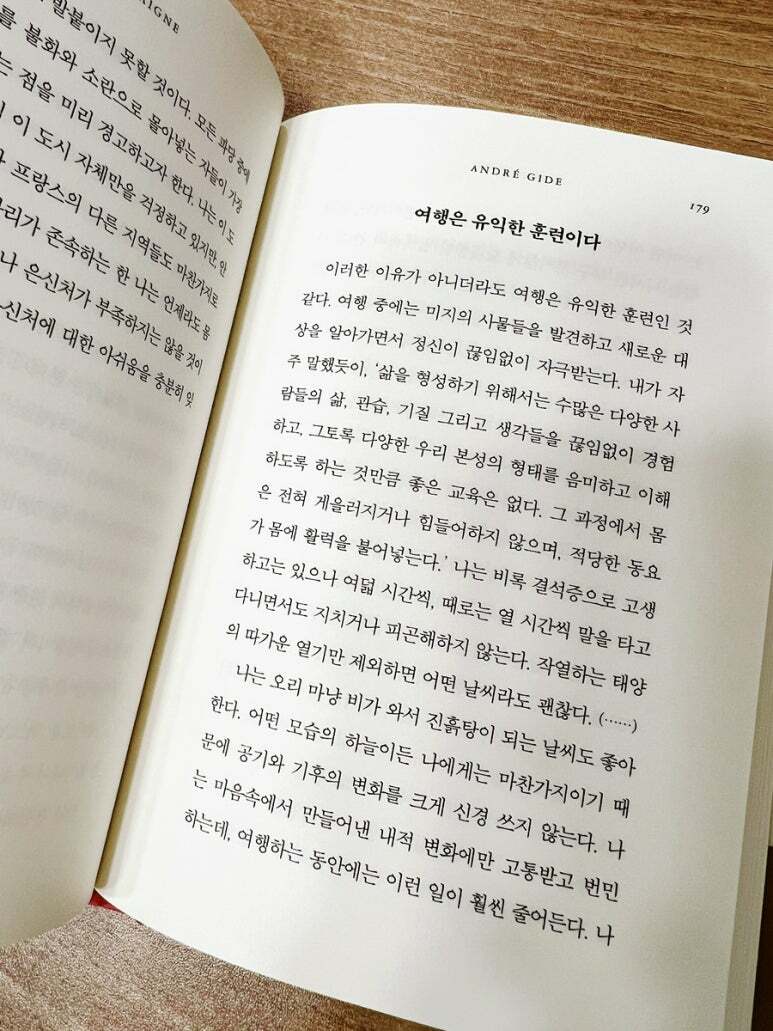 AIGNE
발붙이지 못할 것이다. 모든 파당 중에
를 불화와 소란으로 몰아넣는 자들이 가장
는 점을 미리 경고하고자 한다. 나는 이 도
이 도시 자체만을 걱정하고 있지만 안
프랑스의 다른 지역들도 마찬가지로
리가 존속하는 한 나는 언제라도 몸
나 은신처가 부족하지는 않을 것이
신처에 대한 아쉬움을 충분히 잊
ANDRÉ GIDE
179
여행은 유익한 훈련이다
이러한 이유가 아니더라도 여행은 유익한 훈련인 것
같다. 여행 중에는 미지의 사물들을 발견하고 새로운 대
상을 알아가면서 정신이 끊임없이 자극받는다. 내가 자
주 말했듯이, ‘삶을 형성하기 위해서는 수많은 다양한 사
람들의 삶, 관습, 기질 그리고 생각들을 끊임없이 경험
하고, 그토록 다양한 우리 본성의 형태를 음미하고 이해
하도록 하는 것만큼 좋은 교육은 없다. 그 과정에서 몸
은 전혀 게을러지거나 힘들어하지 않으며, 적당한 동요
가 몸에 활력을 불어넣는다.’ 나는 비록 결석증으로 고생
하고는 있으나 여덟 시간씩, 때로는 열 시간씩 말을 타고
다니면서도 지치거나 피곤해하지 않는다. 작열하는 태양
의 따가운 열기만 제외하면 어떤 날씨라도 괜찮다. (……)
나는 오리 마냥 비가 와서 진흙탕이 되는 날씨도 좋아
한다. 어떤 모습의 하늘이든 나에게는 마찬가지이기 때
문에 공기와 기후의 변화를 크게 신경 쓰지 않는다. 나
는 마음속에서 만들어낸 내적 변화에만 고통받고 번민
하는데, 여행하는 동안에는 이런 일이 훨씬 줄어든다. 나